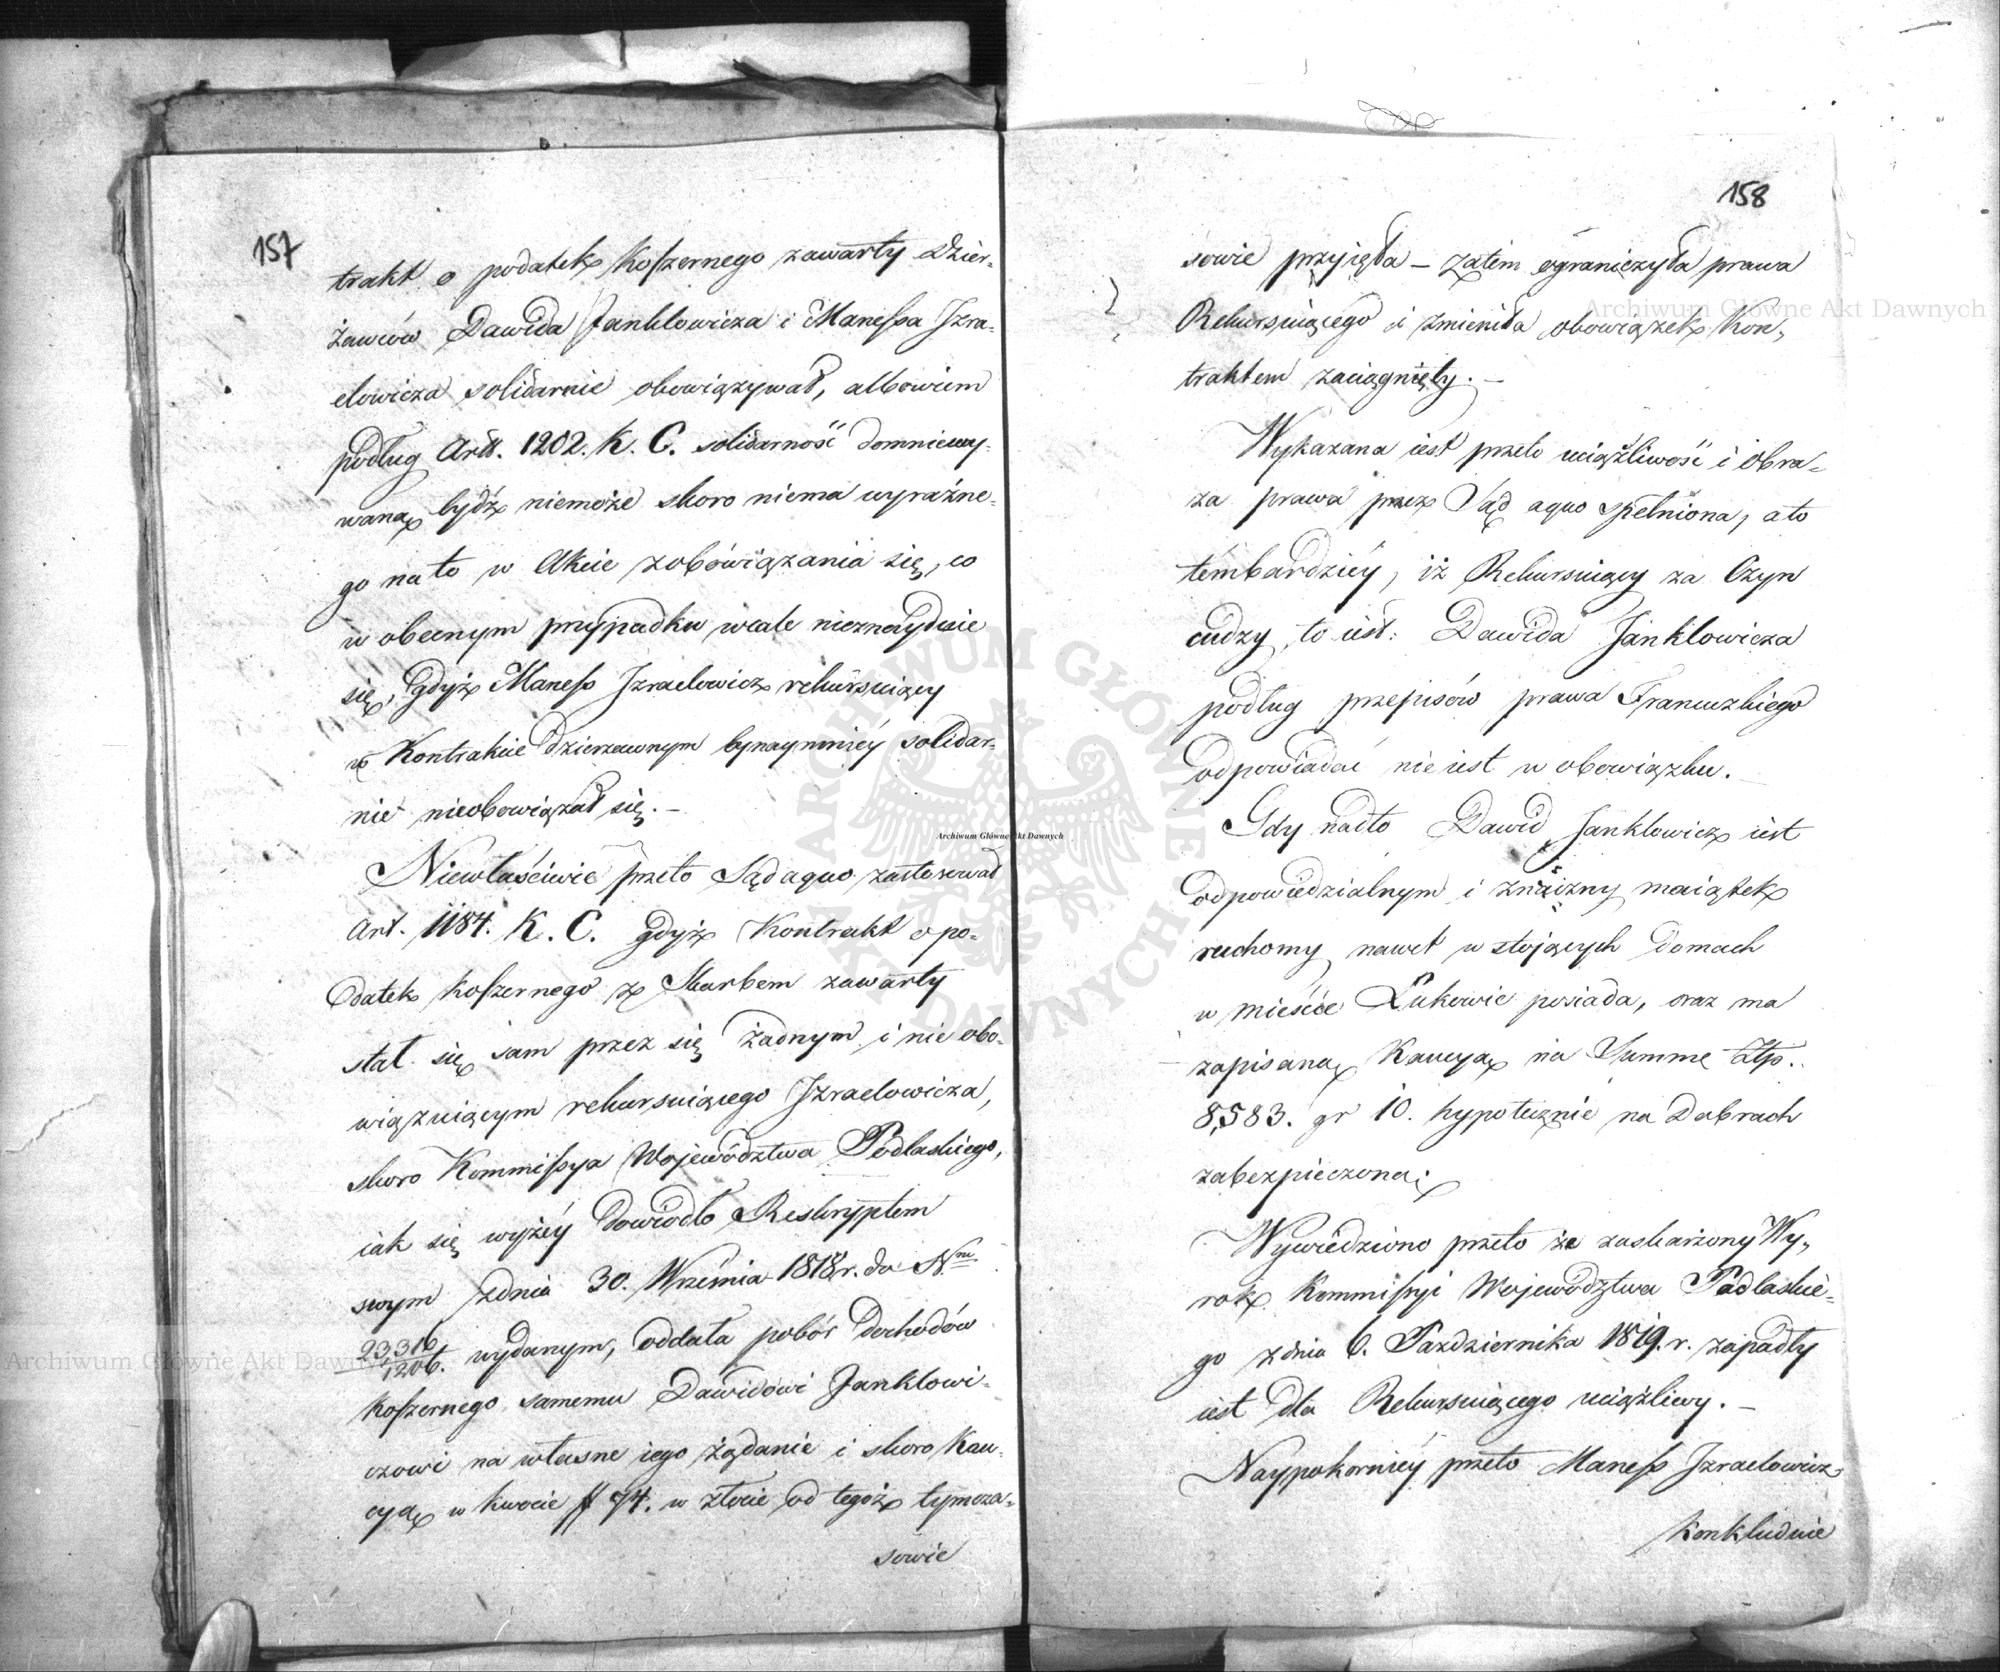 157
trakt o podatek koszernego zawarty dzier-
żawców Dawida Janklowicza i Manessa Izra-
elowicza solidarnie obowiązywał, albowiem
podług Artt. 1202. K. C. solidarność domniemy-
waną bydź niemoże skoro niema wyraźne-
go na to w Akcie zobowiązania się, co
w obecnym przypadku wcale nieznayduie
się, gdyż Maness Izraelowicz rekursuiący
w Kontrakcie dzierzawnym bynaymniéy solidar-
nie nieobowiązał się. –
Niewłaściwie przeto Sąd aquo zastosował
Art. 1184. K. C. gdyż Kontrakt o po-
datek koszernego z Skarbem zawarty
stał się sam przez się żadnym i nie obo-
wiązuiącym rekursuiącego Izraelowicza,
skoro Kommissya Województwa Podlaskiego,
iak się wyżéy dowiodło Reskryptem
swym z dnia 30. Września 1818 r. do Nru
23316/1206. wydanym, oddała pobór dochodów
koszernego samemu Dawidowi Janklowi-
czowi na własne iego żądanie i skoro Kau-
cyą w kwocie # 74. w złocie od tegoż tymcza-
sowie
158
sowie przyięła – zatem ograniczyła prawa
Rekursuiącego i zmieniła obowiązek Kon-
traktem zaciągnięty. –
Wykazana iest przeto uciążliwość i obra-
za prawa przez Sąd aquo spełniona, a to
tembardziéy, iż Rekursuiący za Czyn
cudzy, to iest: Dawida Janklowicza
podług przepisów prawa Francuzkiego
odpowiadać nie iest w obowiązku. –
Gdy nadto Dawid Janklowicz iest
odpowiedzialnym i znaczny maiątek
ruchomy nawet w stojących domach
w mieście Łukowie posiada, oraz ma
zapisaną Kaucyą na Summę Złp.
8,583. gr 10. hypotecznie na Dobrach
zabezpieczoną;
Wywiedziono przeto że zaskarżony Wy-
rok Kommissyi Województwa Podlaskie-
go z dnia 6. Pazdziernika 1819. r. zapadły
iest dla Rekursuiącego uciążliwy. –
Naypokorniéy przeto Maness Izraelowicz
Konkluduie
Archiwum Główne Akt Dawnych
Archiwum Główne Akt Dawnych
Archiwum Główne Akt Dawnych
ARCHIWUM GŁÓWNE AKT DAWNYCH